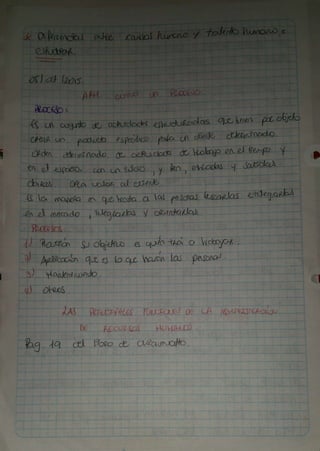 de Diferencias entre capital humano y talento humano =
estudiar
05/07/2015
ARH como un Proceso
PROCESO:
Es un conjunto de actividades estructuradas que tienen por objeto
crear un producto específico para un cliente determinado
orden determinado de actividades de trabajo en el tiempo y
en el espacio con un inicio, y fin, entradas y salidas
claras. Crea valor al cliente
Es la manera en que trata a las personas buscarlas
en el mercado, integrarlas y orientarlas
PROCESOS
1) Provisión su objetivo es quién irá a trabajar.
2) Aplicación que es lo que harán las personas.
3) Manteniendo.
4) otros
LAS PRINCIPALES FUNCIONES DE LA ADMINISTRACIÓN
DE RECURSOS HUMANOS.
Pag 19 del libro de